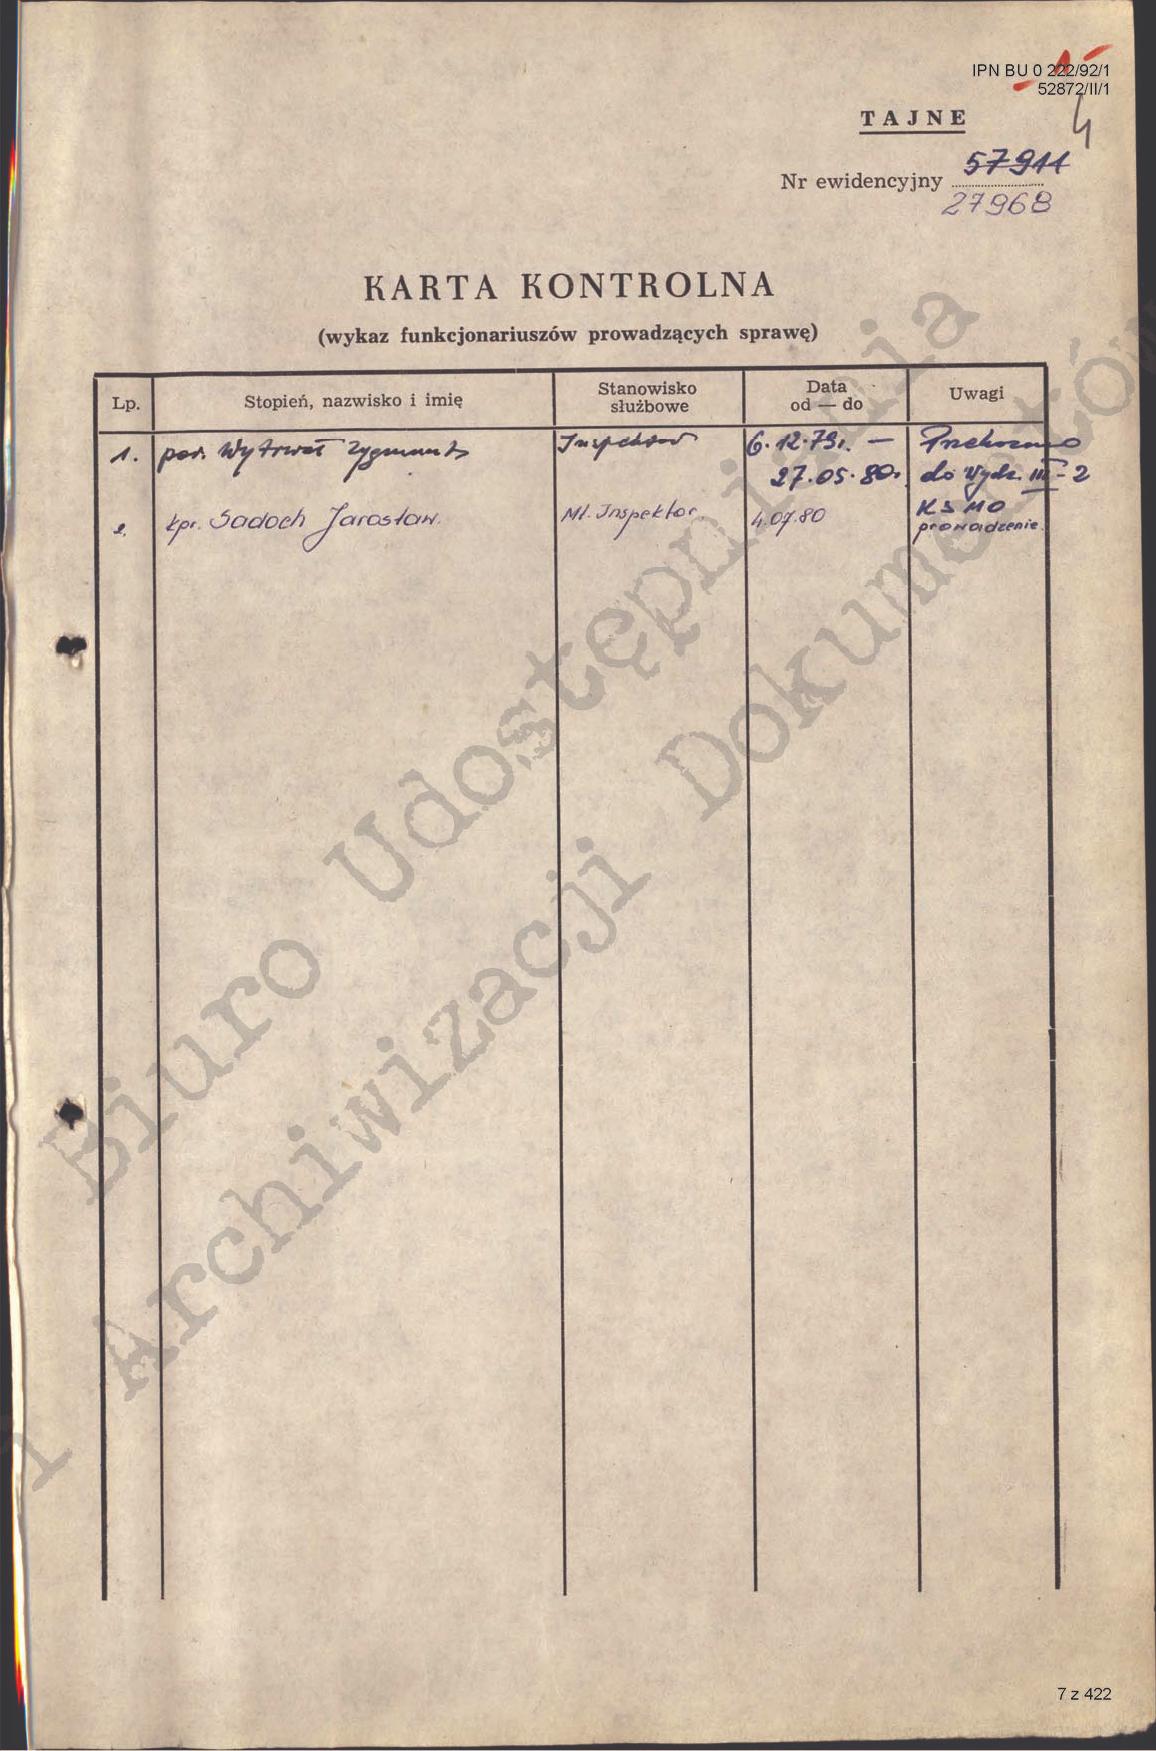 IPN BU 0 222/92/1
52872/II/1
TAJNE
4
57911
Nr ewidencyjny
27968
KARTA KONTROLNA
(wykaz funkcjonariuszów prowadzących sprawę)
Lp. Stopień, nazwisko i imię Stanowisko służbowe Data od — do Uwagi
1. por. Wytrwał Zygmunt Inspektor 6.12.79r. — Przekazano
27.05.80r. do Wydz. III-2
KSMO
2. kpr. Sadoch Jarosław. Mł. Inspektor. 4.07.80 prowadzenie.
Biuro Udostępniania
i Archiwizacji Dokumentów
7 z 422